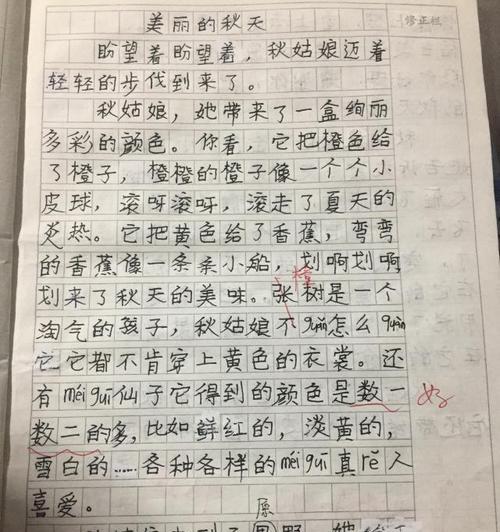 美丽的秋天
修正栏
盼望着盼望着，秋姑娘迈着
轻轻的步伐到来了。
秋姑娘，她带来了一盒绚丽
多彩的颜色。你看，它把橙色给
了橙子，橙橙的橙子像一个个小
皮球，滚呀滚呀，滚走了夏天的
炎热。它把黄色给了香蕉，弯弯
的香蕉像一条条小船，划啊划啊，
划来了秋天的美味。张树是一个
樟
淘气的孩子，秋姑娘不guǎn怎么quàn
它它都不肯穿上黄色的衣裳。还
有méi guī仙子它得到的颜色是数一
好
数二的多，比如鲜红的，淡黄的，
雪白的……各种各样的méi guī真rě人
喜爱。
原